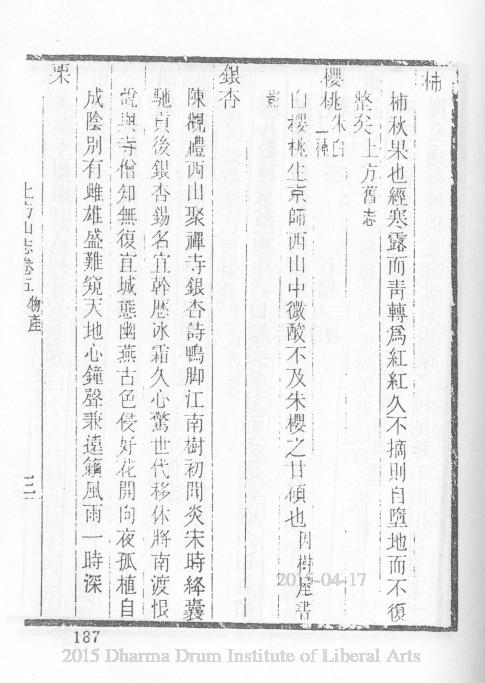 柿
柿秋果也經寒露而青轉為紅紅久不摘則自墮地而不復
整矣上方舊志
櫻桃朱白二種
白櫻桃生京師西山中微酸不及朱櫻之甘傾也因樹屋書
影
銀杏
陳觀禮西山聚禪寺銀杏詩鴨脚江南樹初聞炎宋時絳囊
馳貢後銀杏錫名宜幹歷冰霜久心驚世代移休將南渡恨
說與寺僧知無復宜城態幽燕古色侵好花開向夜孤植自
成陰別有雌雄盛難窺天地心鐘聲兼遠籟風雨一時深
栗
上方山志卷五 物產 三
187
2015-04-17
2015 Dharma Drum Institute of Liberal Arts